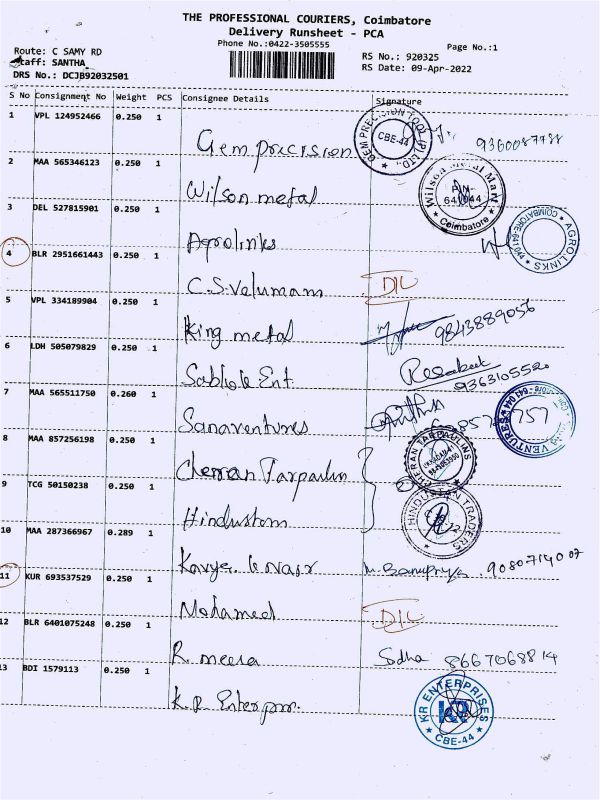 THE PROFESSIONAL COURIERS, Coimbatore
Delivery Runsheet - PCA
Phone No.:0422-3505555
Page No.:1
Route: C SAMY RD
Staff: SANTHA
DRS No.: DCJB92032501
RS No.: 920325
RS Date: 09-Apr-2022
S No Consignment No Weight PCS Consignee Details Signature
1 VPL 124952466 0.250 1
Gem precision GEM PRECISION TOOL (P) LTD. CBE-44
2 MAA 565346123 0.250 1
Wilson metal Wilson Metal Mart PIN- 641044 Coimbatore
3 DEL 527815901 0.250 1
Agrolinks AGROLINKS COIMBATORE-641 044
4 BLR 2951661443 0.250 1
C.S. Velumam D/L
5 VPL 334189904 0.250 1
King metal 9843889056
6 LDH 505079829 0.250 1
Ent. 9363105520
7 MAA 565511750 0.260 1
Sanaventures VENTURES
8 MAA 857256198 0.250 1
Cherran Tarpaulin CHERAN TARPAULINS
9 TCG 50150238 0.250 1
Hindustan HINDUSTAN TRADERS
10 MAA 287366967 0.289 1
9080714007
11 KUR 693537529 0.250 1
Mohamed D/L
12 BLR 6401075248 0.250 1
R. meera Sdha 8667068814
13 BDI 1579113 0.250 1
K.R. Enterprn. KR ENTERPRISES KR CBE-44